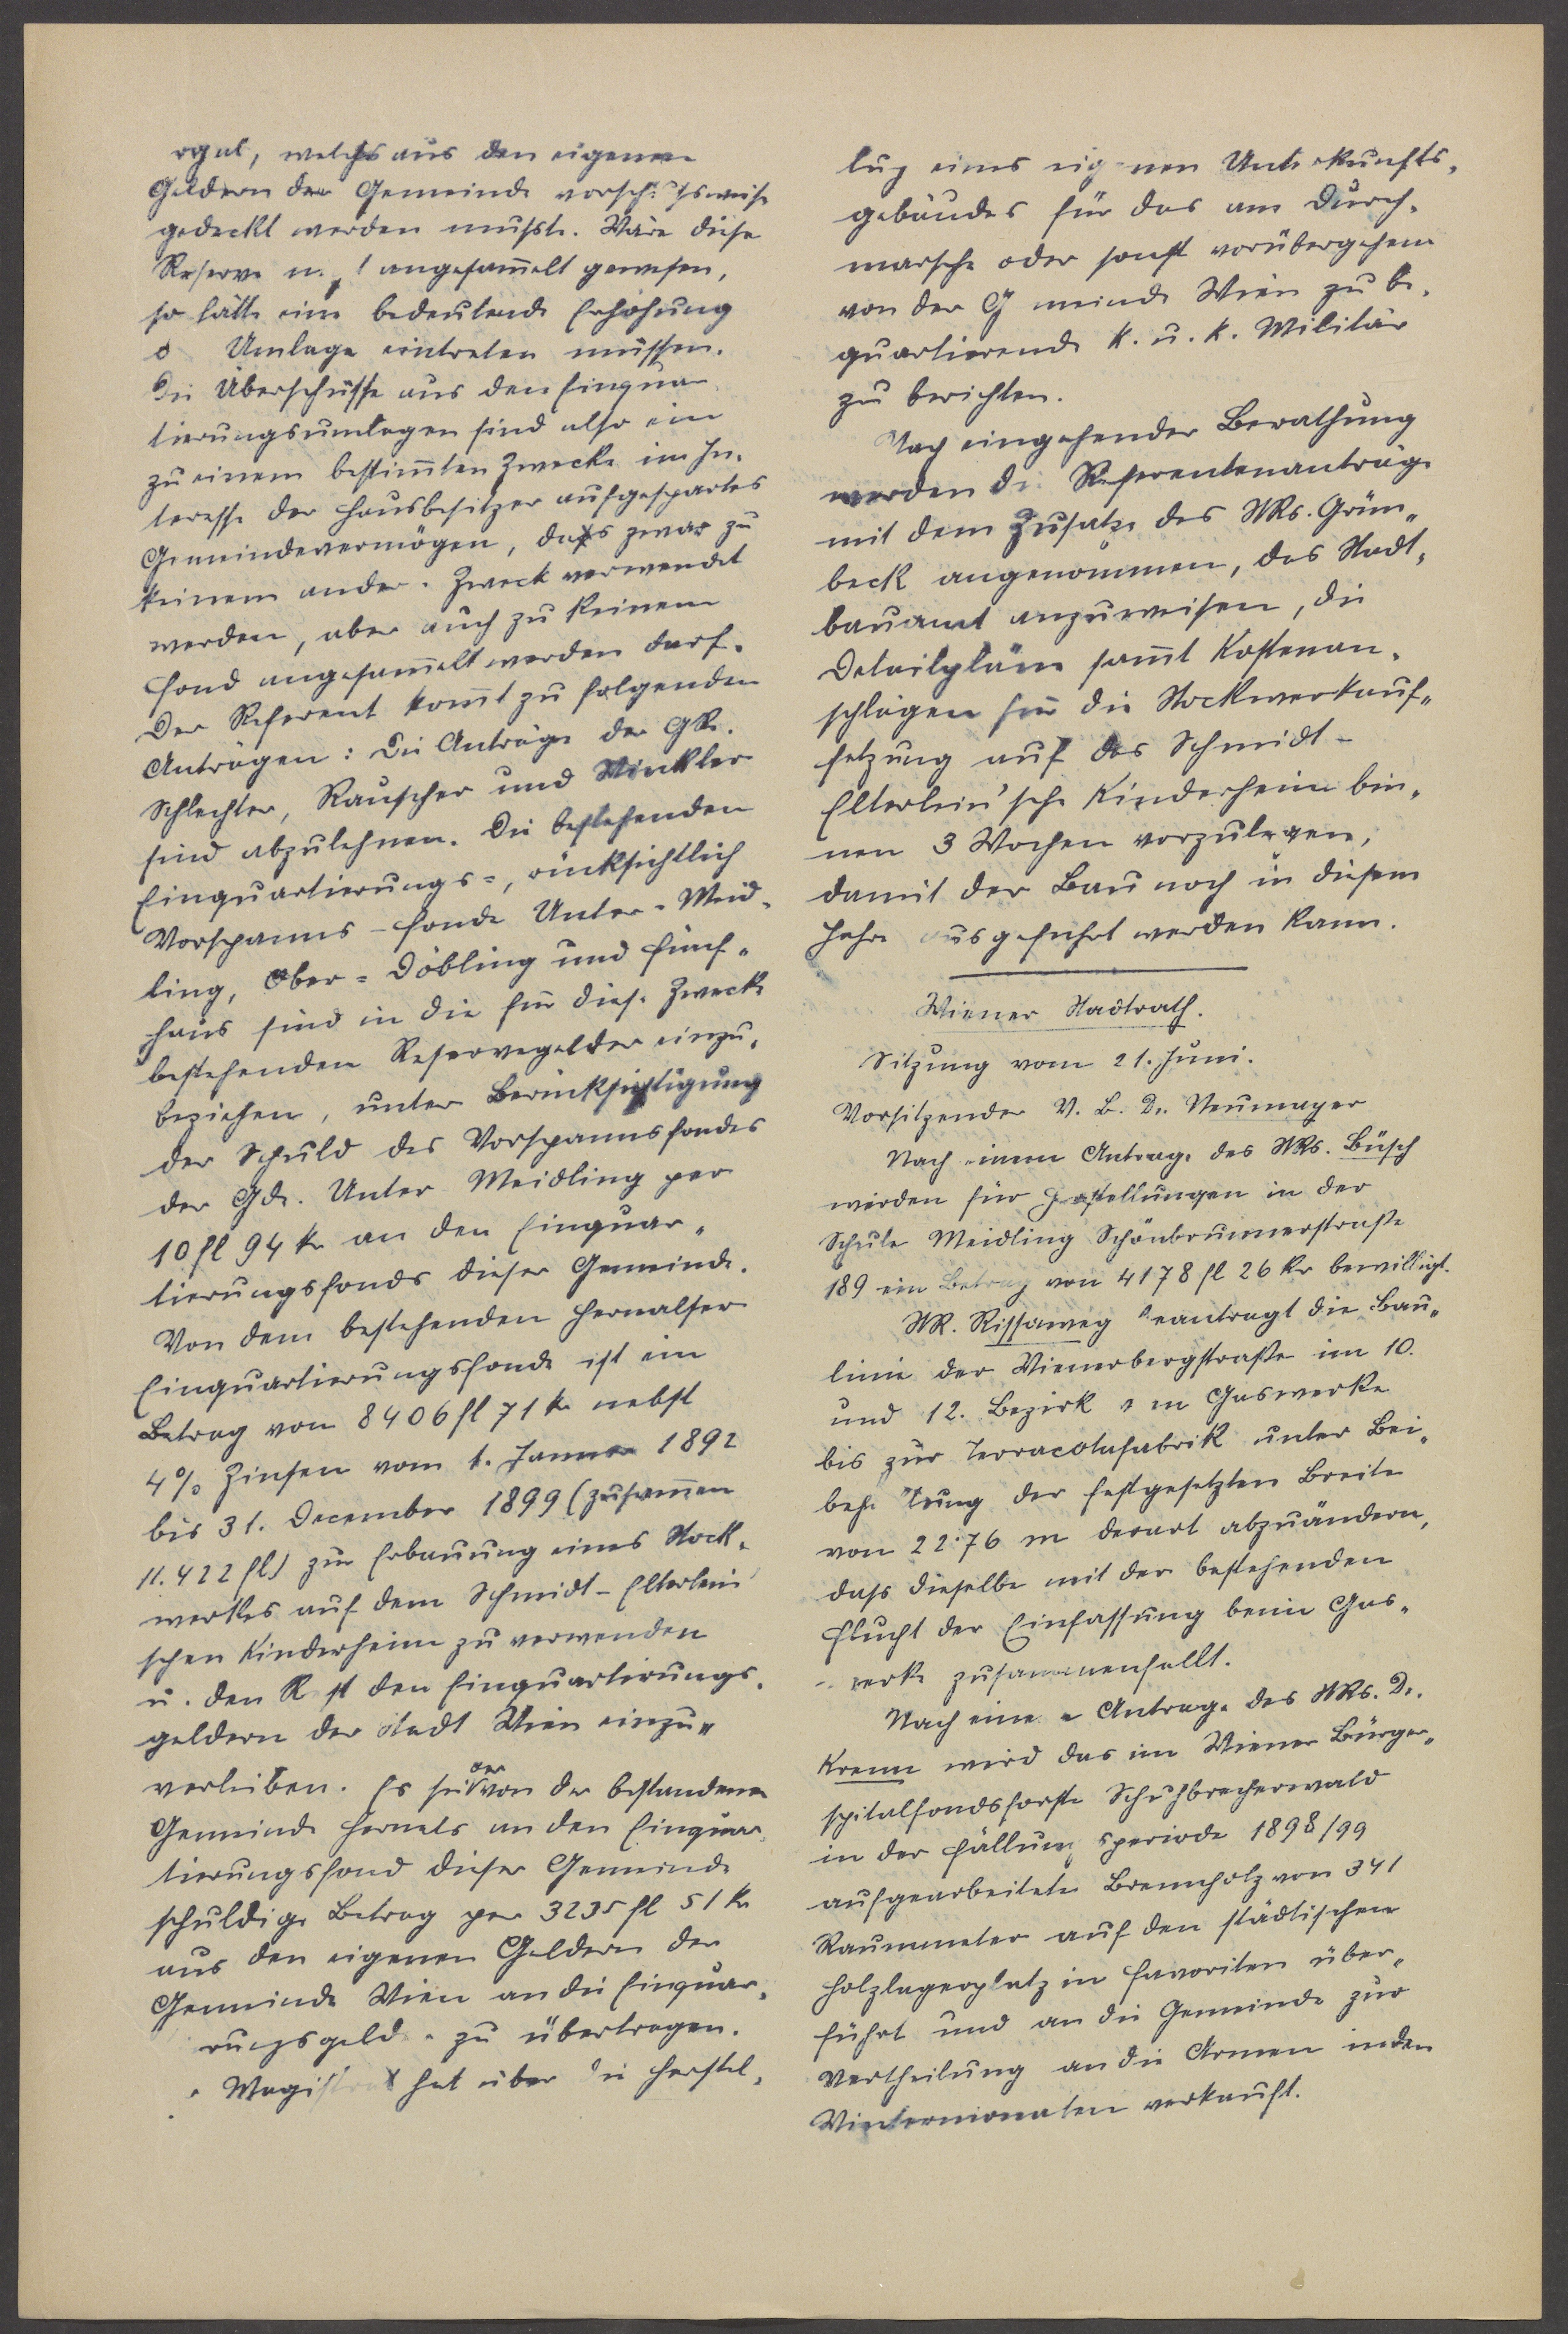 welches aus den eigenen
Geldern der Gemeinde vorschußweise
gedeckt werden mußte. Wäre diese
Reserve nicht angesam̄elt gewesen,
so hätte eine bedeutende Erhöhung
d Umlage eintreten müssen.
Die Überschüsse aus den Einquar
tierungsumlagen sind also ein
zu einem bestim̄ten Zwecke im In-
teresse der Hausbesitzer aufgespartes
Gemeindevermögen, das zwar zu
keinem ander. Zweck verwendet
werden, aber auch zu keinem
Fond angesam̄elt werden darf.
Der Referent kom̄t zu folgenden
Anträgen: Die Anträge der GR.
Schlechter, Rauscher und Winkler
sind abzulehnen. Die bestehenden
Einquartierungs-, rücksichtlich
Vorspanns-Fonde Unter-Meid-
ling, Ober-Döbling und Fünf-
haus sind in die für diese Zwecke
bestehenden Reservegelder einzu-
beziehen, unter Berücksichtigung
der Schuld des Vorspannsfondes
der Gde. Unter Meidling per
10 fl 94 kr an den Einquar-
tierungsfonds dieser Gemeinde.
Von dem bestehenden Hernalser
Einquartierungsfonde ist ein
Betrag von 8406 fl 71 kr nebst
4% Zinsen vom 1. Jänner 1892
bis 31. December 1899 (zusam̄en
11.422 fl) zur Erbauung eines Stock-
werkes auf dem Schmidt-Elterlein'
schen Kinderheim zu verwenden
u. den R st den Einquartierungs-
geldern der Stadt Wien einzu-
verleiben. Es sei der von der bestandenen
Gemeinde Hernals an den Einquar-
tierungsfond dieser Gemeinde
schuldige Betrag per 3235 fl 51 kr
aus den eigenen Geldern der
Gemeinde Wien an die Einquar-
rungsgeld zu übertragen.
Magistrat hat über die Herstel-
lug eines eig nen Unterkunfts-
gebäudes für das am Durch-
marsche oder sonst vorübergehend
von der G meinde Wien zu be-
quartierende k. u. k. Militär
zu berichten.
Nach eingehender Berathung
werden die Referentenanträge
mit dem Zusatze des StRs. Grün-
beck angenommen, das Stadt-
bauamt anzuweisen, die
Detailpläne sam̄t Kostenan-
schlägen für die Stockwerkauf-
setzung auf das Schmidt-
Elterlein'sche Kinderheim bin-
nen 3 Wochen vorzulegen,
damit der Bau noch in diesem
Jahre ausgeführt werden kann.
Wiener Stadtrath.
Sitzung vom 21. Juni.
Vorsitzender V. B. Dr. Neumayer
Nach einem Antrage des StRs. Büsch
werden für Herstellungen in der
Schule Meidling Schönbrunnerstraße
189 ein Betrag von 4178 fl 26 kr bewilligt.
StR. Rissaweg beantragt die Bau-
linie der Wienerbergstraße im 10.
und 12. Bezirk vom Gaswerke
bis zur Terracotafabrik unter Bei-
behaltung der festgesetzten Breite
von 22·76 m derart abzuändern,
dass dieselbe mit der bestehenden
Flucht der Einfassung beim Gas-
werke zusammenfällt.
Nach einem Antrage des StRs. Dr.
Krenn wird das im Wiener Bürger-
spitalfondsforste Schuhbrecherwald
in der Fällungsperiode 1898/99
aufgearbeitete Brennholz von 341
Raummeter auf den städtischen
Holzlagerplatz in Favoriten über-
führt und an die Gemeinde zur
Vertheilung an die Armen in den
Wintermonaten verkauft.